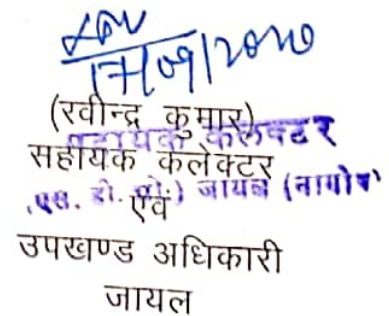 17/09/2020
(रवीन्द्र कुमार)
सहायक कलेक्टर
सहायक कलेक्टर
एवं
उपखण्ड अधिकारी
जायल